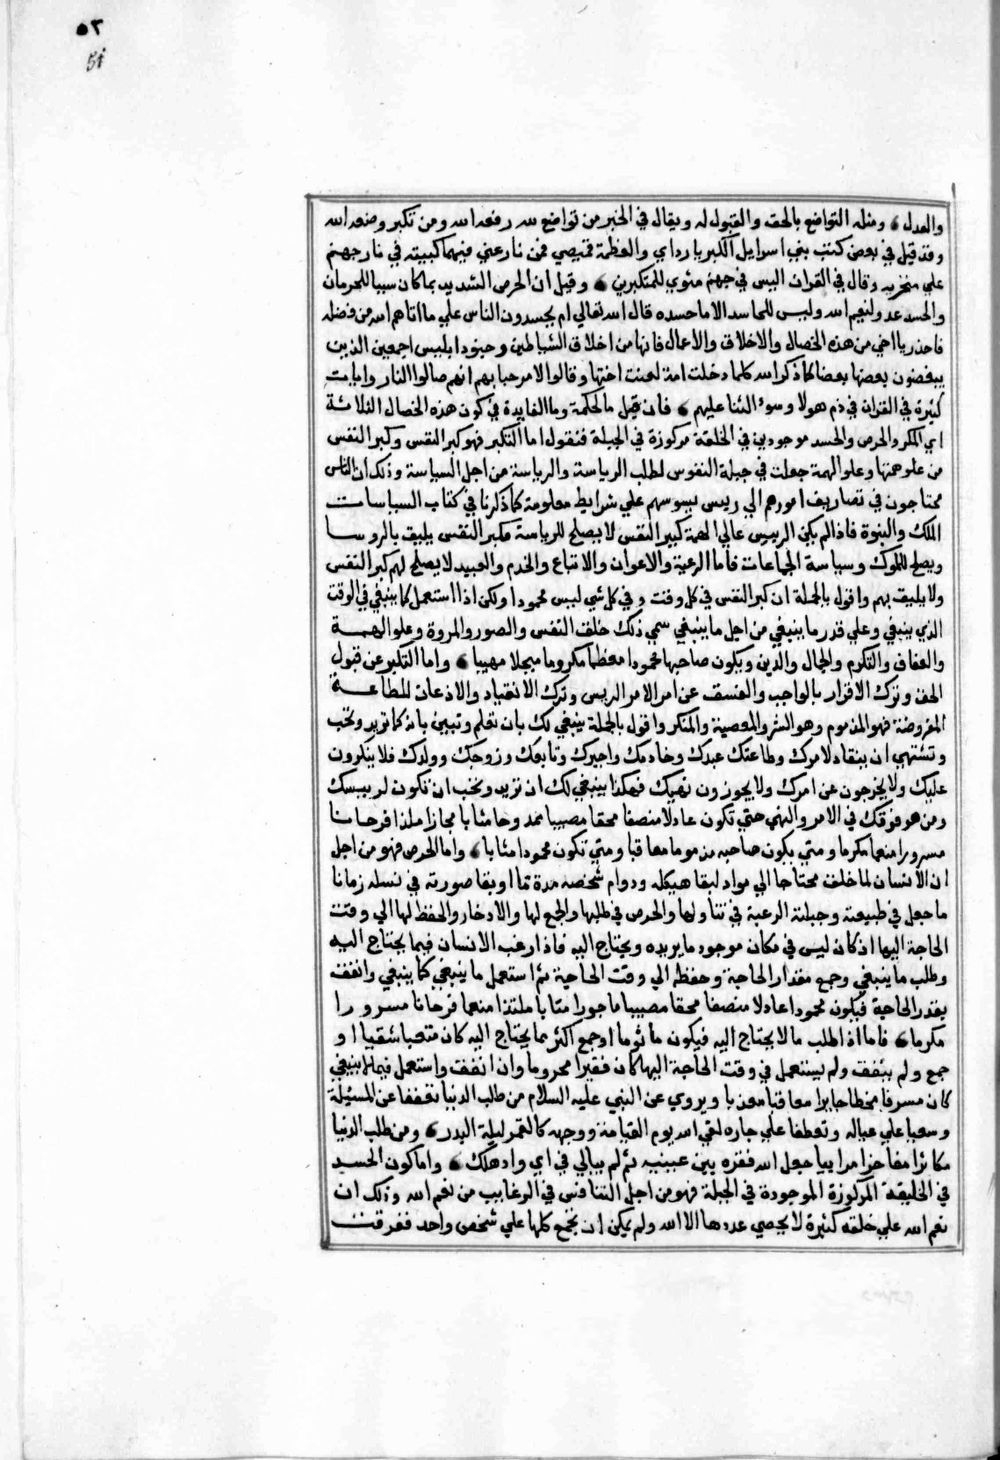 ٥٢
51
والعدل ومثله التواضع بالحق والقبول له ويقال في الخبر من تواضع لله رفعه الله ومن تكبر وضعه الله
وقد قيل في بعض كتب بني اسرايل الكبريا رداي والعظمة قميصي فمن نازعني فيهما كببته في نار جهنم
علي منخريه وقال في القران اليس في جهنم مثوي للمتكبرين وقيل ان الحرص الشديد بما كان سببا للحرمان
والحسد عدو لنعيم الله وليس للحاسد الا ما حسده قال الله تعالي ام يحسدون الناس علي ما اتاهم الله من فضله
فاحذر يا اخي من هذه الخصال والاخلاق والاعمال فانها من اخلاق الشياطين وجنود ابليس اجمعين الذين
يبغضون بعضها بعضا كما ذكر الله كلما دخلت امة لعنت اختها وقالوا لا مرحبا بهم انهم صالوا النار وايات
كثيرة في القران في ذم هولا وسوء الثنا عليهم فان قيل ما الحكمة وما الفايدة في كون هذه الخصال الثلاثة
اي الكبر والحرص والحسد موجودين في الخلقة مركوزة في الجبلة فنقول اما التكبر فهو كبر النفس وكبر النفس
من علو همتها وعلو الهمة جعلت في جبلة النفوس لطلب الرياسة والرياسة من اجل السياسة وذلك ان الناس
محتاجون في تصاريف امورهم الي رييس يسوسهم علي شرايط معلومة كما ذكرنا في كتاب السياسات
الملك والنبوة فاذا لم يكن الرييس عالي الهمة كبير النفس لا يصلح للرياسة فكبر النفس يليق بالروسا
ويصلح للملوك وسياسة الجماعات فاما الرعية والاعوان والاتباع والخدم والعبيد لا يصلح لهم كبر النفس
ولا يليق بهم واقول بالجملة ان كبر النفس في كل وقت وفي كل شي ليس محمودا ولكن اذا استعمل كما ينبغي في الوقت
الذي ينبغي وعلي قدر ما ينبغي من اجل ما ينبغي سمي ذلك خلق النفس والصور والمروة وعلو الهمة
والعفاف والتكرم والجمال والدين ويكون صاحبها محمودا معظما مكروما مبجلا مهيبا واما التكبر عن قبول
الحق وترك الاقرار بالواجب والفسق عن امر الامر الرييس وترك الانقياد والاذعان للطاعة
المفروضة فهو المذموم وهو الشر والمعصية والمنكر واقول بالجملة ينبغي لك بان تعلم وتبين بانه كما تريد وتحب
وتشتهي ان ينقاد لامرك وطاعتك عبدك وخادمك واجيرك وتابعك وزوجك وولدك فلا ينكرون
عليك ولا يخرجون عن امرك ولا يجوزون نهيك فهكذا ينبغي لك ان تريد وتحب ان تكون لرييسك
ومن هو فوقك في الامر والنهي حتي تكون عادلا منصفا محقا مصيبا ممد وحا مثابا مجازا ملذا فرحانا
مسرورا منعما مكرما ومتي يكون صاحبه مذموما معاقبا ومتي تكون محمودا مثابا واما الحرص فهو من اجل
ان الانسان لما خلق محتاجا الي مواد لبقا هيكله ودوام شخصه مدة ما اوبقا صورته في نسله زمانا
ما جعل في طبيعته وجبلته الرغبة في تناولها والحرص في طلبها والجمع لها والادخار والحفظ لها الي وقت
الحاجة اليها اذ كان ليس في مكان موجود ما يريده ويحتاج اليه فاذا رغب الانسان فيما يحتاج اليه
وطلب ما ينبغي وجمع مقدار الحاجة وحفظه الي وقت الحاجة ثم استعمل ما ينبغي كما ينبغي وانفق
بقدر الحاجة فيكون محمودا عادلا منصفا محقا مصيبا ماجورا مثابا ملتذا منعما فرحانا مسرورا
مكرما فاما اذا طلب ما لا يحتاج اليه فيكون ماثوما او جمع اكثر مما يحتاج اليه كان متعبا شقيا او
جمع ولم ينفق ولم يستعمل في وقت الحاجة اليها كان فقيرا محروما وان انفق واستعمل فيما لا ينبغي
كان مسرفا مخطا جايرا معاقبا معذبا ويروي عن النبي عليه السلام من طلب الدنيا تعففا عن المسئلة
وسعيا علي عياله وتعطفا علي جاره لقي الله يوم القيامة ووجهه كالقمر ليلة البدر ومن طلب الدنيا
مكاثرا مفاخرا مراييا جعل الله فقره بين عينيه ثم لم يبالي في اي واد هلك واما كون الحسد
في الخليقة المركوزة الموجودة في الجبلة فهو من اجل التنافس في الرغايب من نعم الله وذلك ان
نعم الله علي خلقه كثيرة لا يحصي عددها الا الله ولم يكن ان تجمع كلها علي شخص واحد ففرقت